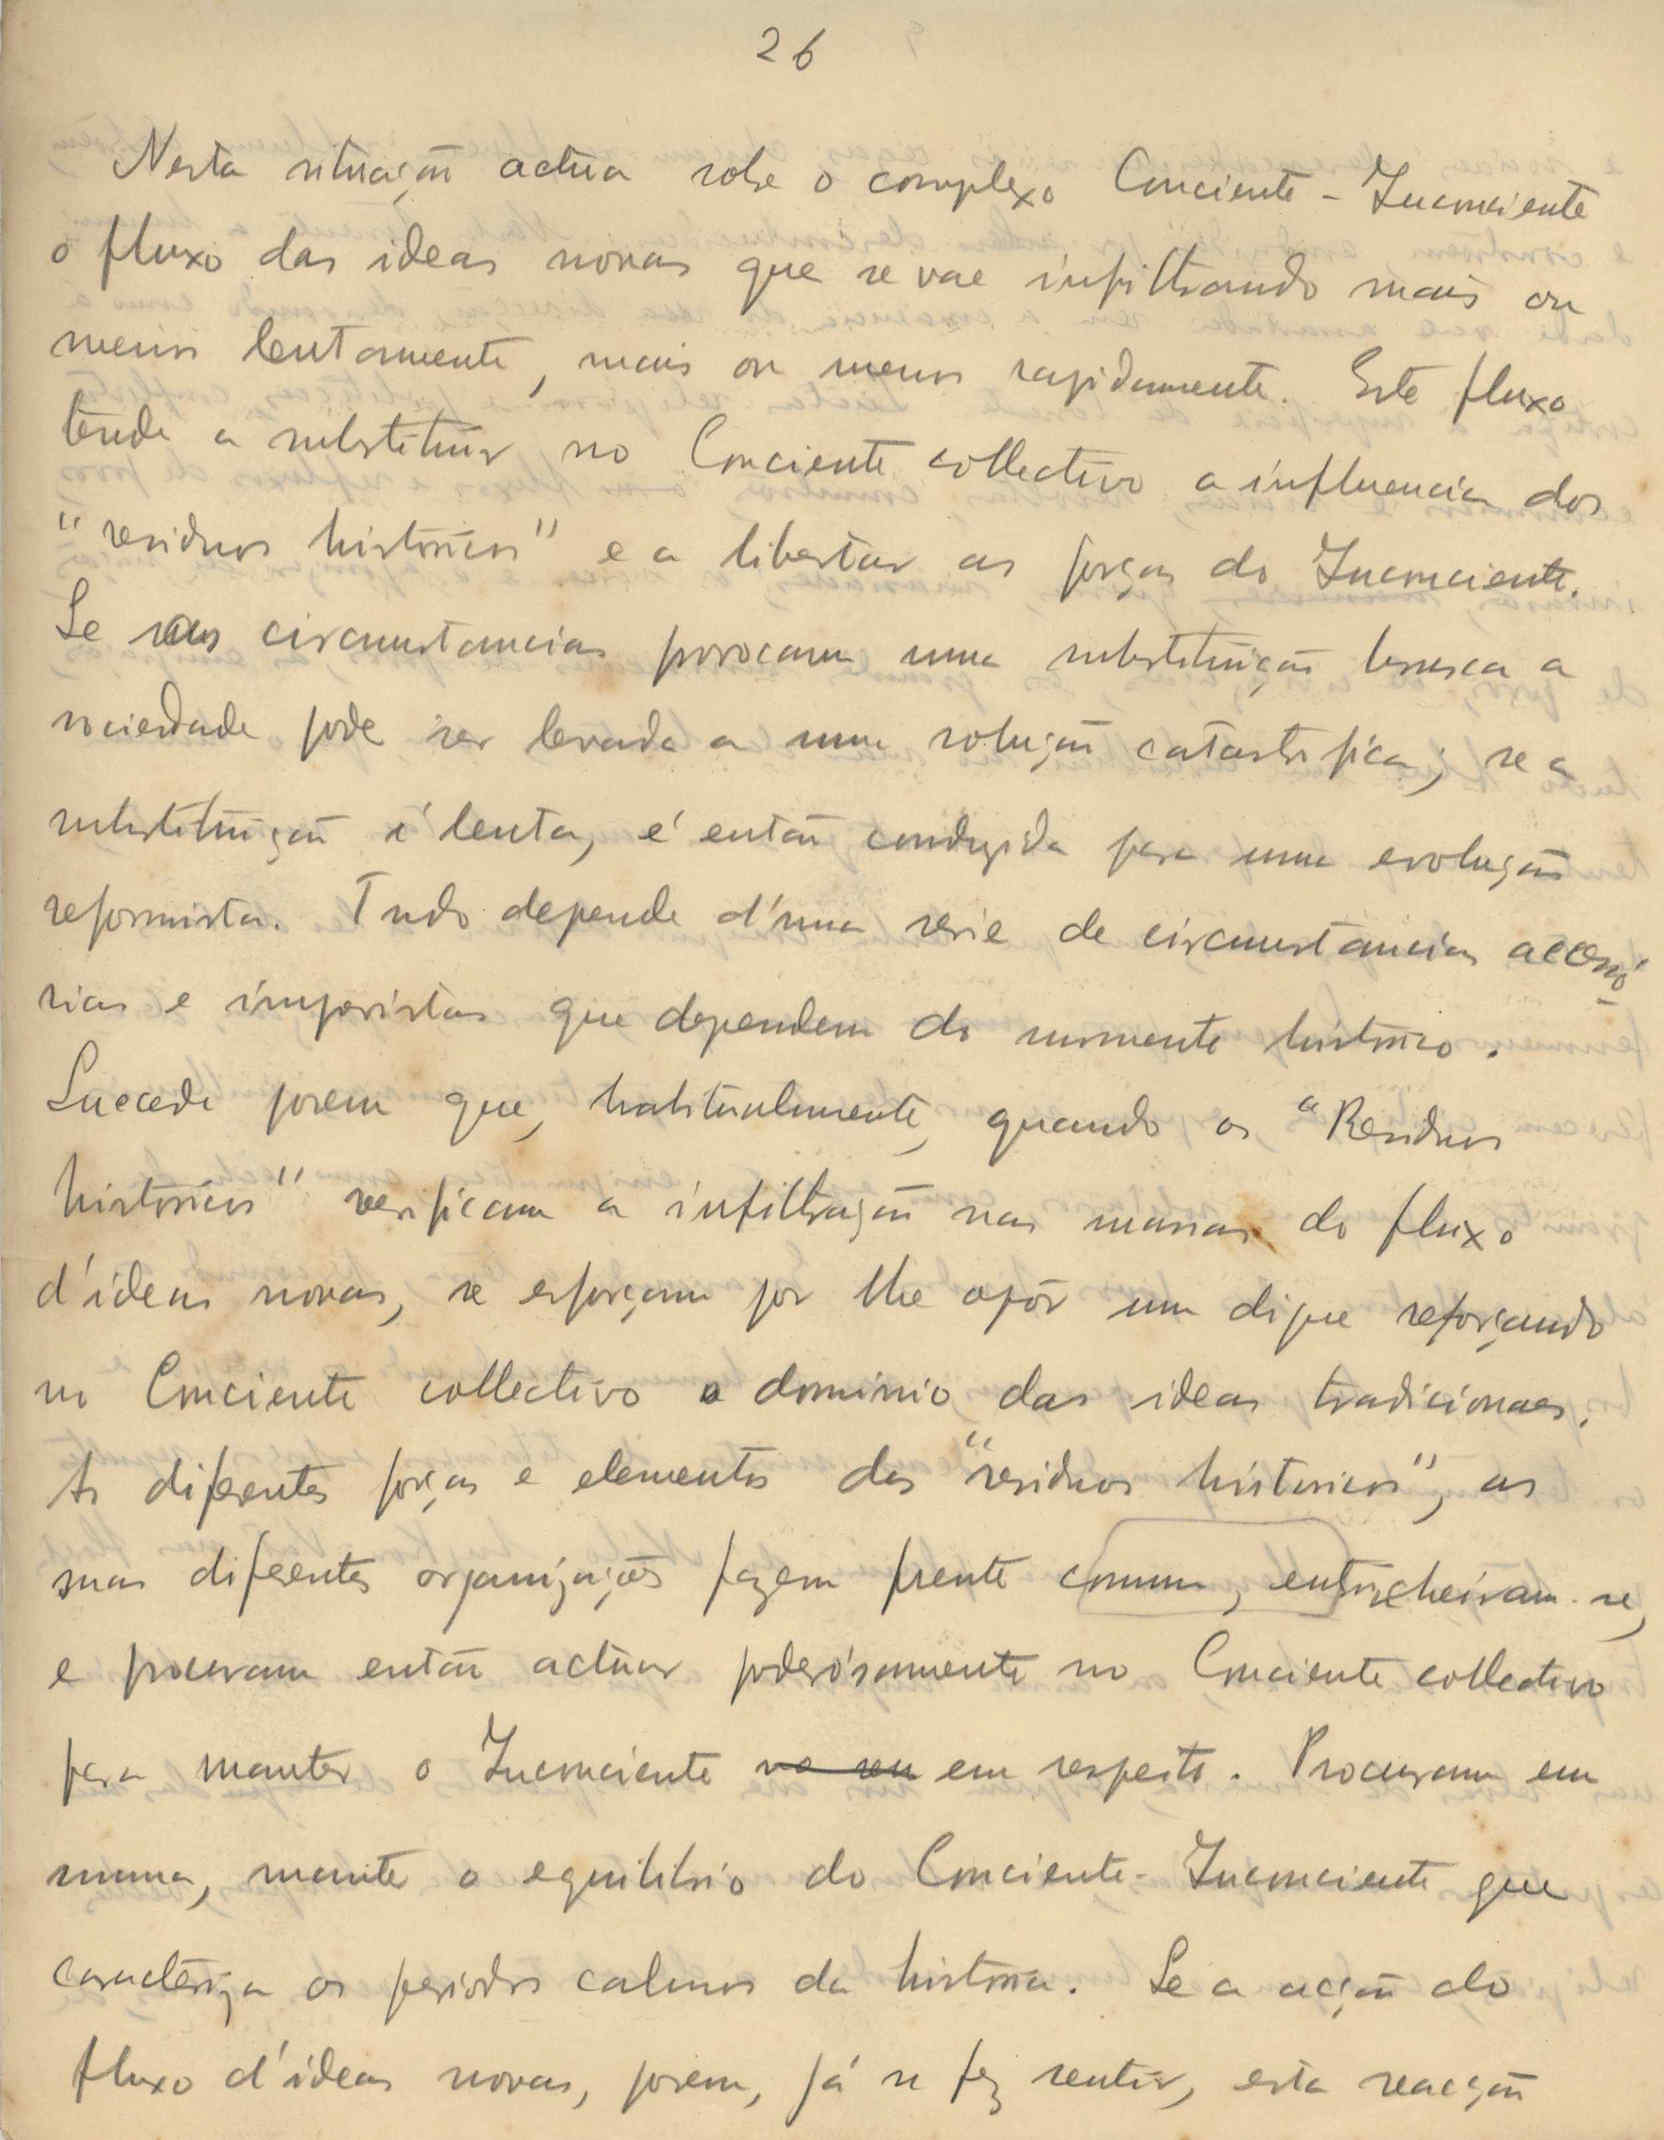 26
Nesta situação actua sobre o complexo Conciente - Inconciente
o fluxo das ideas novas que se vae infiltrando mais ou
menos lentamente, mais ou menos rapidamente. Este fluxo
tende a substituir no Conciente collectivo a influencia dos
"residuos historicos" e a libertar as forças do Inconciente.
Se as circumstancias provocam uma substituição brusca a
sociedade pode ser levada a uma solução catastrofica; se a
substituição é lenta, é então conduzida para uma evolução
reformista. Tudo depende d'uma serie de circumstancias acessó-
rias e imprevistas que dependem do momento historico.
Succede porem que, habitualmente, quando os "Residuos
historicos" verificam a infiltração nas massas do fluxo
d'ideas novas, se esforçam por lhe opôr um dique reforçando
no Conciente collectivo o dominio das ideas tradicionaes.
As diferentes forças e elementos dos "residuos historicos", as
suas diferentes organizações fazem frente comum, entrincheiram-se,
e procuram então actuar poderósamente no Conciente collectivo
para manter o Inconciente no seu em respeito. Procuram em
suma, manter o equilibrio do Conciente-Inconciente que
caracteriza os periodos calmos da historia. Se a acção do
fluxo d'ideas novas, porem, já se fez sentir, esta reacção